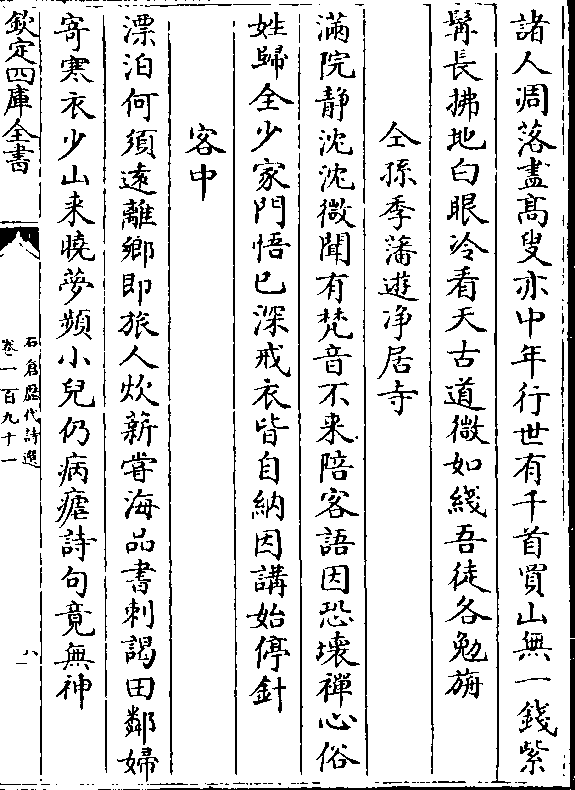 諸人凋落盡高叟亦中年行世有千首買山無一錢紫
髯長拂地白眼冷看天古道微如綫吾徒各勉旃
仝孫季蕃遊净居寺
滿院静沈沈微聞有梵音不来陪客語因恐壊禪心俗
姓歸全少家門悟已深戒衣皆自納因講始停針
客中
漂泊何須遠離鄉即旅人炊薪嘗海品書刺謁田鄰婦
寄寒衣少山来曉夢頻小兒仍病瘧詩句竟無神
欽定四庫全書
石倉歷代詩選
卷一百九十一
八